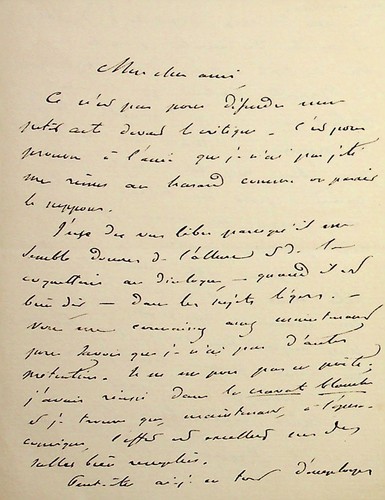 Mon cher ami
Ce n'est pas pour défendre mon
petit acte devant la critique. C'est pour
prouver à l'ami que je n'ai pas jeté
mes rimes au hasard comme on paraît
le supposer.
J'use des vers libres parcequ'il me
semble donner de l'allure et de la
coquetterie au dialogue, — quand il est
bien dit — dans les sujets légers. —
Vous me connaissez assez maintenant
pour savoir que je n'ai pas d'autres
prétentions. Je ne me pas un poète,
j'avais réussi dans la cravate blanche
et je trouve que, maintenant, à l'opéra-
comique, l'effet est excellent des
salles bien remplies.
Peut-être ai-je eu tort d'employer